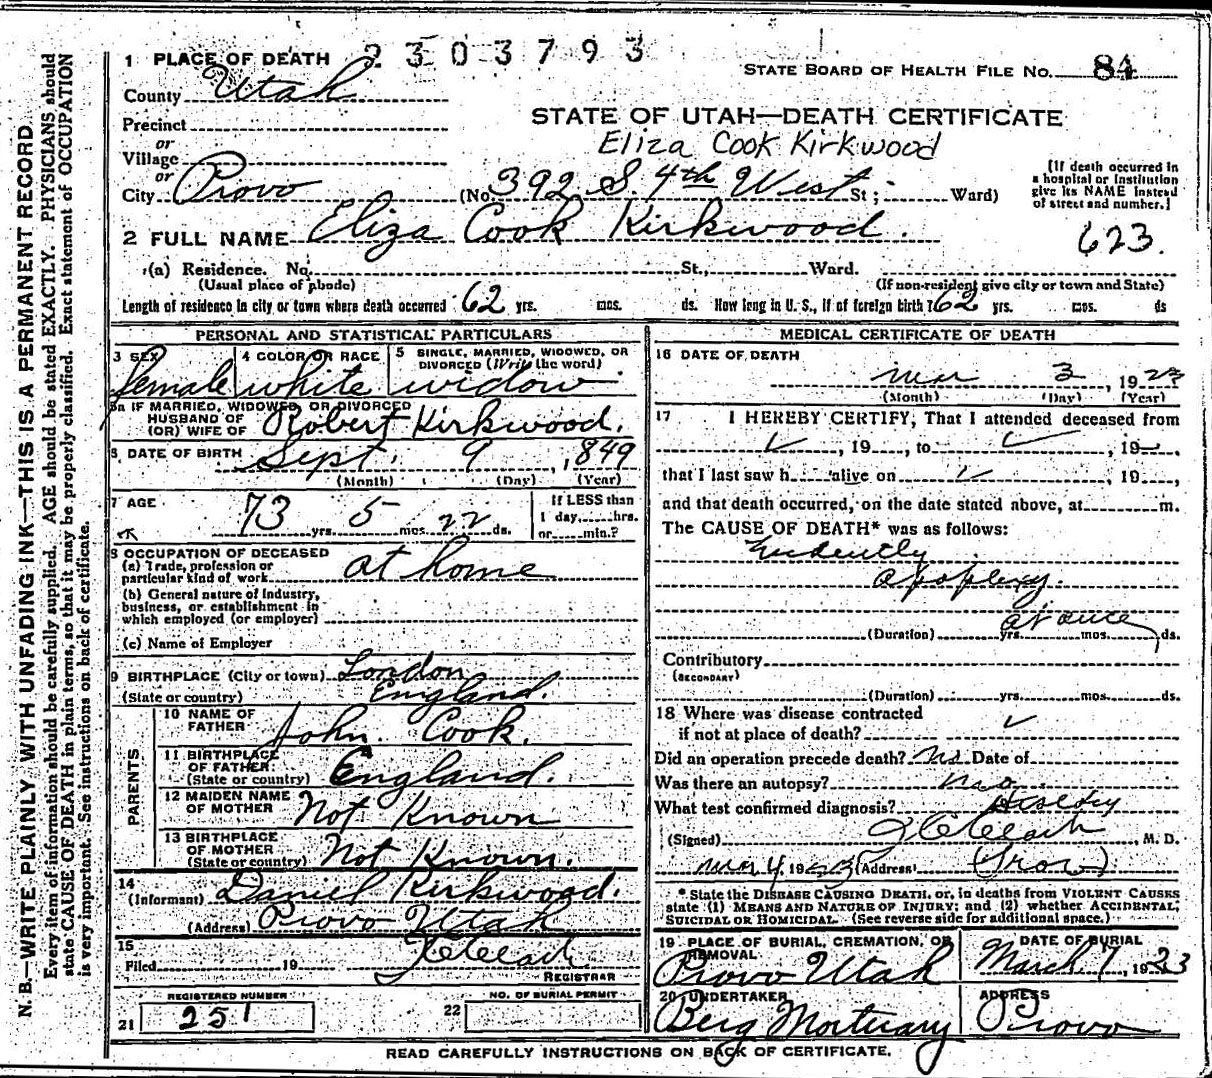 2303793
1 PLACE OF DEATH
STATE BOARD OF HEALTH FILE No. 84
County Utah
STATE OF UTAH—DEATH CERTIFICATE
Precinct
or
Village
or
Eliza Cook Kirkwood
City Provo (No. 392 S. 4th West St; Ward)
[If death occurred in
a hospital or Institution
give its NAME instead
of street and number.]
2 FULL NAME Eliza Cook Kirkwood.
623.
(a) Residence. No. St., Ward.
(Usual place of abode) (If non-resident give city or town and State)
Length of residence in city or town where death occurred 62 yrs. mos. ds. How long in U. S., if of foreign birth? 62 yrs. mos. ds
PERSONAL AND STATISTICAL PARTICULARS
3 SEX
female
4 COLOR OR RACE
white
5 SINGLE, MARRIED, WIDOWED, OR
DIVORCED (Write the word)
widow
5a IF MARRIED, WIDOWED, OR DIVORCED
HUSBAND OF
(OR) WIFE OF Robert Kirkwood.
6 DATE OF BIRTH Sept. 9, 1849
(Month) (Day) (Year)
7 AGE
73 yrs. 5 mos. 22 ds.
If LESS than
1 day,......hrs.
or......min.?
8 OCCUPATION OF DECEASED
(a) Trade, profession or
particular kind of work at home
(b) General nature of Industry,
business, or establishment in
which employed (or employer)
(c) Name of Employer
9 BIRTHPLACE (City or town) London
(State or country) England.
PARENTS
10 NAME OF
FATHER John Cook.
11 BIRTHPLACE
OF FATHER
(State or country) England.
12 MAIDEN NAME
OF MOTHER Not Known
13 BIRTHPLACE
OF MOTHER
(State or country) Not Known.
14
(Informant) Daniel Kirkwood.
(Address) Provo Utah
15
Filed 19
REGISTRAR
REGISTERED NUMBER
21 251
NO. OF BURIAL PERMIT
22
MEDICAL CERTIFICATE OF DEATH
16 DATE OF DEATH
Mar 3, 1923
(Month) (Day) (Year)
17 I HEREBY CERTIFY, That I attended deceased from
, 19, to , 19,
that I last saw h alive on , 19,
and that death occurred, on the date stated above, at m.
The CAUSE OF DEATH* was as follows:
Evidently
apoplexy.
at once
(Duration) yrs. mos. ds.
Contributory
(SECONDARY)
(Duration) yrs. mos. ds.
18 Where was disease contracted
if not at place of death?
Did an operation precede death? No Date of
Was there an autopsy? no
What test confirmed diagnosis?
(Signed) , M. D.
Mar 4, 1923 (Address) Provo
* State the DISEASE CAUSING DEATH, or, in deaths from VIOLENT CAUSES
state (1) MEANS AND NATURE OF INJURY; and (2) whether ACCIDENTAL,
SUICIDAL OR HOMICIDAL. (See reverse side for additional space.)
19 PLACE OF BURIAL, CREMATION, OR
REMOVAL
Provo Utah
DATE OF BURIAL
March 7, 1923
20 UNDERTAKER
Berg Mortuary
ADDRESS
Provo
READ CAREFULLY INSTRUCTIONS ON BACK OF CERTIFICATE.
N. B.—WRITE PLAINLY WITH UNFADING INK—THIS IS A PERMANENT RECORD
Every item of information should be carefully supplied. AGE should be stated EXACTLY. PHYSICIANS should
state CAUSE OF DEATH in plain terms, so that it may be properly classified. Exact statement of OCCUPATION
is very important. See instructions on back of certificate.